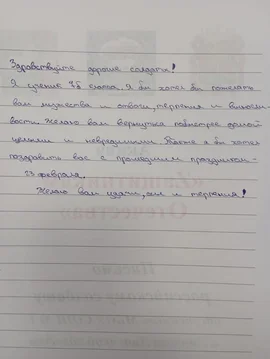 Здравствуйте дорогие солдаты!
Я ученик 7Б класса. Я бы хотел бы пожелать
вам мужества и отваги, терпения и выносли-
вости. Желаю вам вернуться поскорее домой
целыми и невредимыми. Также я бы хотел
поздравить вас с прошедшим праздником -
23 февраля.
Желаю вам удачи, сил и терпения!